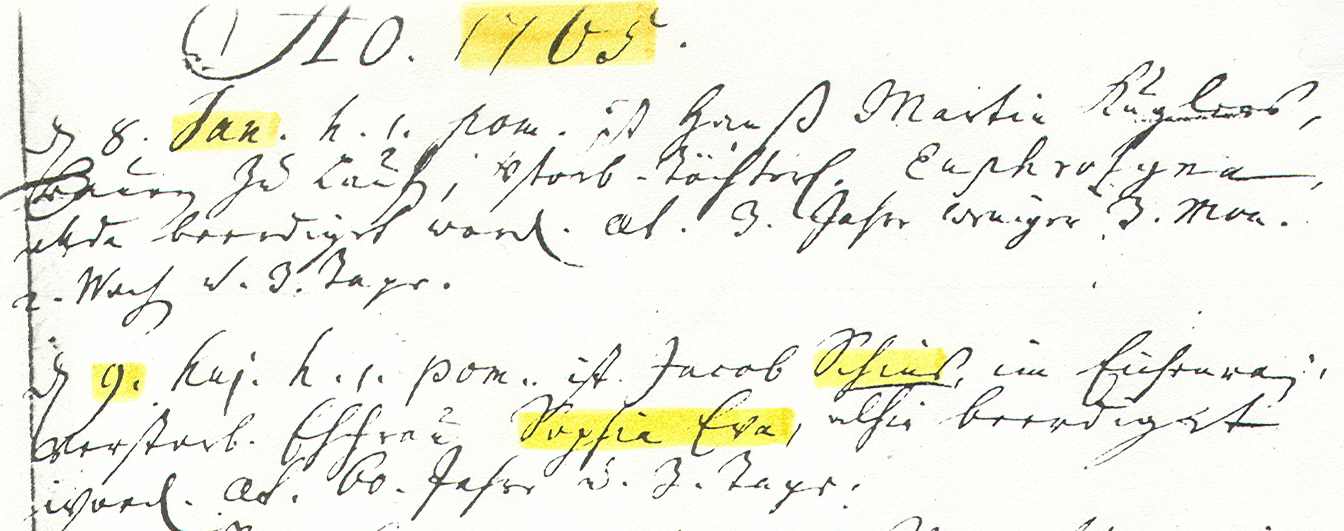 Ao. 1765.
d 8. Jan. h. 1. pom. ist Hanß Martin Küglers,
Bauern zu Lauf, vstorb. Töchterl. Euphrosyna,
allda beerdiget word. aet. 3. Jahr weniger 3. Mon.
2. Woch u. 3. Tage.
d 9. huj. h. 1. pom. ist Jacob Schius, im
verstorb. Ehfrau Sophia Eva, alhier beerdiget
word. aet. 60. Jahr u. 3. Tage.